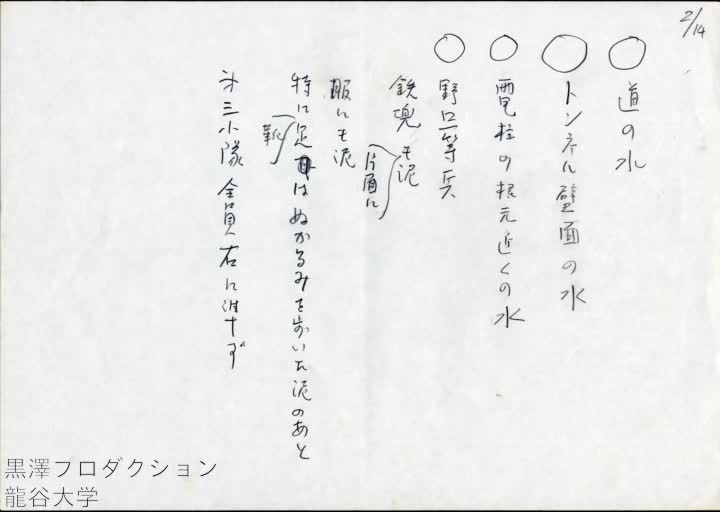 2/14
○ 道の水
○ トンネル壁面の水
○ 電柱の根元近くの水
○ 野口一等兵
鉄兜も泥
(片面に)
服にも泥
特に足はぬかるみを歩いた泥のあと
(靴)
第三小隊全員右に準ず
黒澤プロダクション
龍谷大学